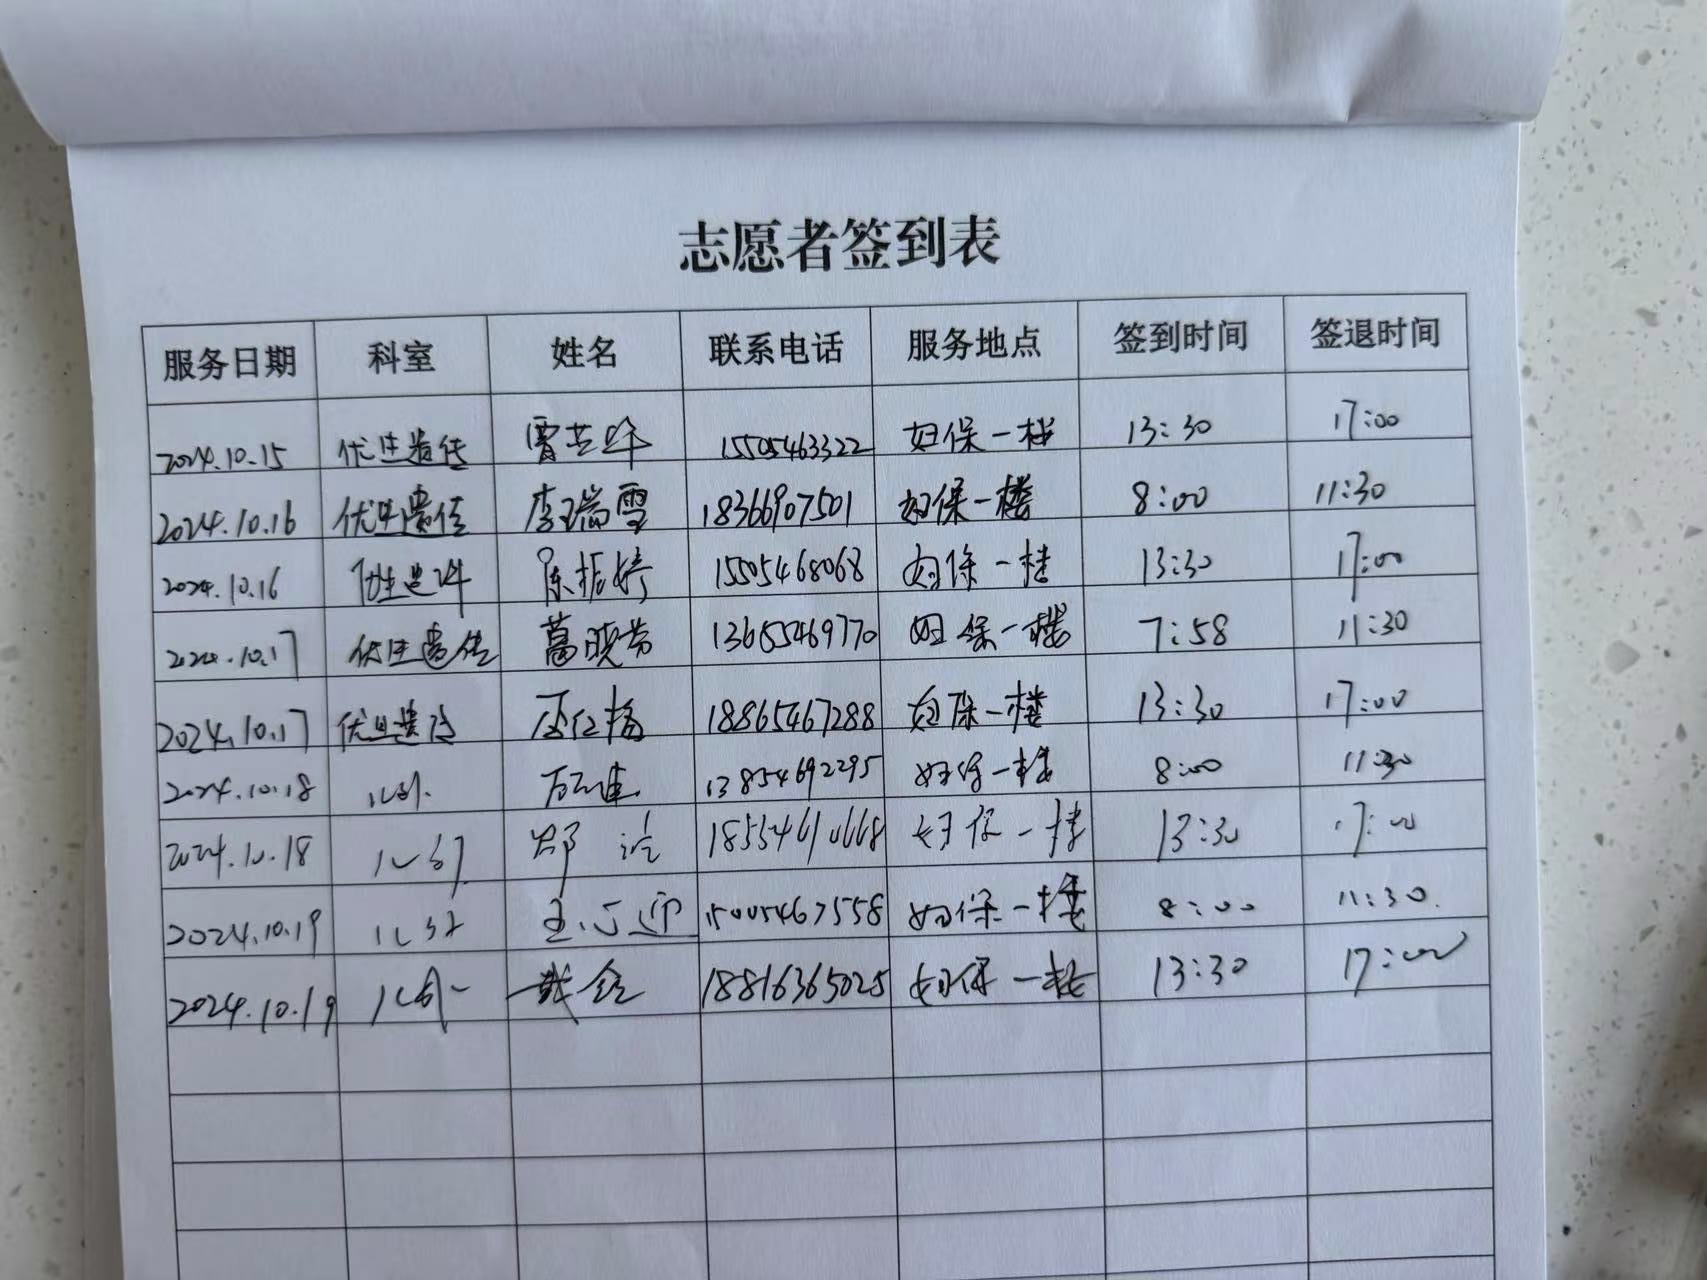 志愿者签到表
服务日期 科室 姓名 联系电话 服务地点 签到时间 签退时间
2024.10.15 优生遗传 15505463322 妇保一楼 13:30 17:00
2024.10.16 优生遗传 李瑞雪 18366907501 妇保一楼 8:00 11:30
2024.10.16 优生遗传 陈振婷 15505468068 妇保一楼 13:30 17:00
2024.10.17 优生遗传 葛晓芳 13655469770 妇保一楼 7:58 11:30
2024.10.17 优生遗传 18865467288 妇保一楼 13:30 17:00
2024.10.18 儿外 13854692295 妇保一楼 8:00 11:30
2024.10.18 儿外 妇保一楼 13:30 17:00
2024.10.19 儿外 王心迎 15005467558 妇保一楼 8:00 11:30
2024.10.19 儿外 18816365025 妇保一楼 13:30 17:00